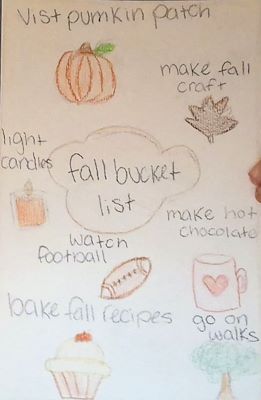 Vist pumkin patch
make fall
craft
light
candles
fall bucket
list
make hot
chocolate
watch
football
bake fall recipes
go on
walks